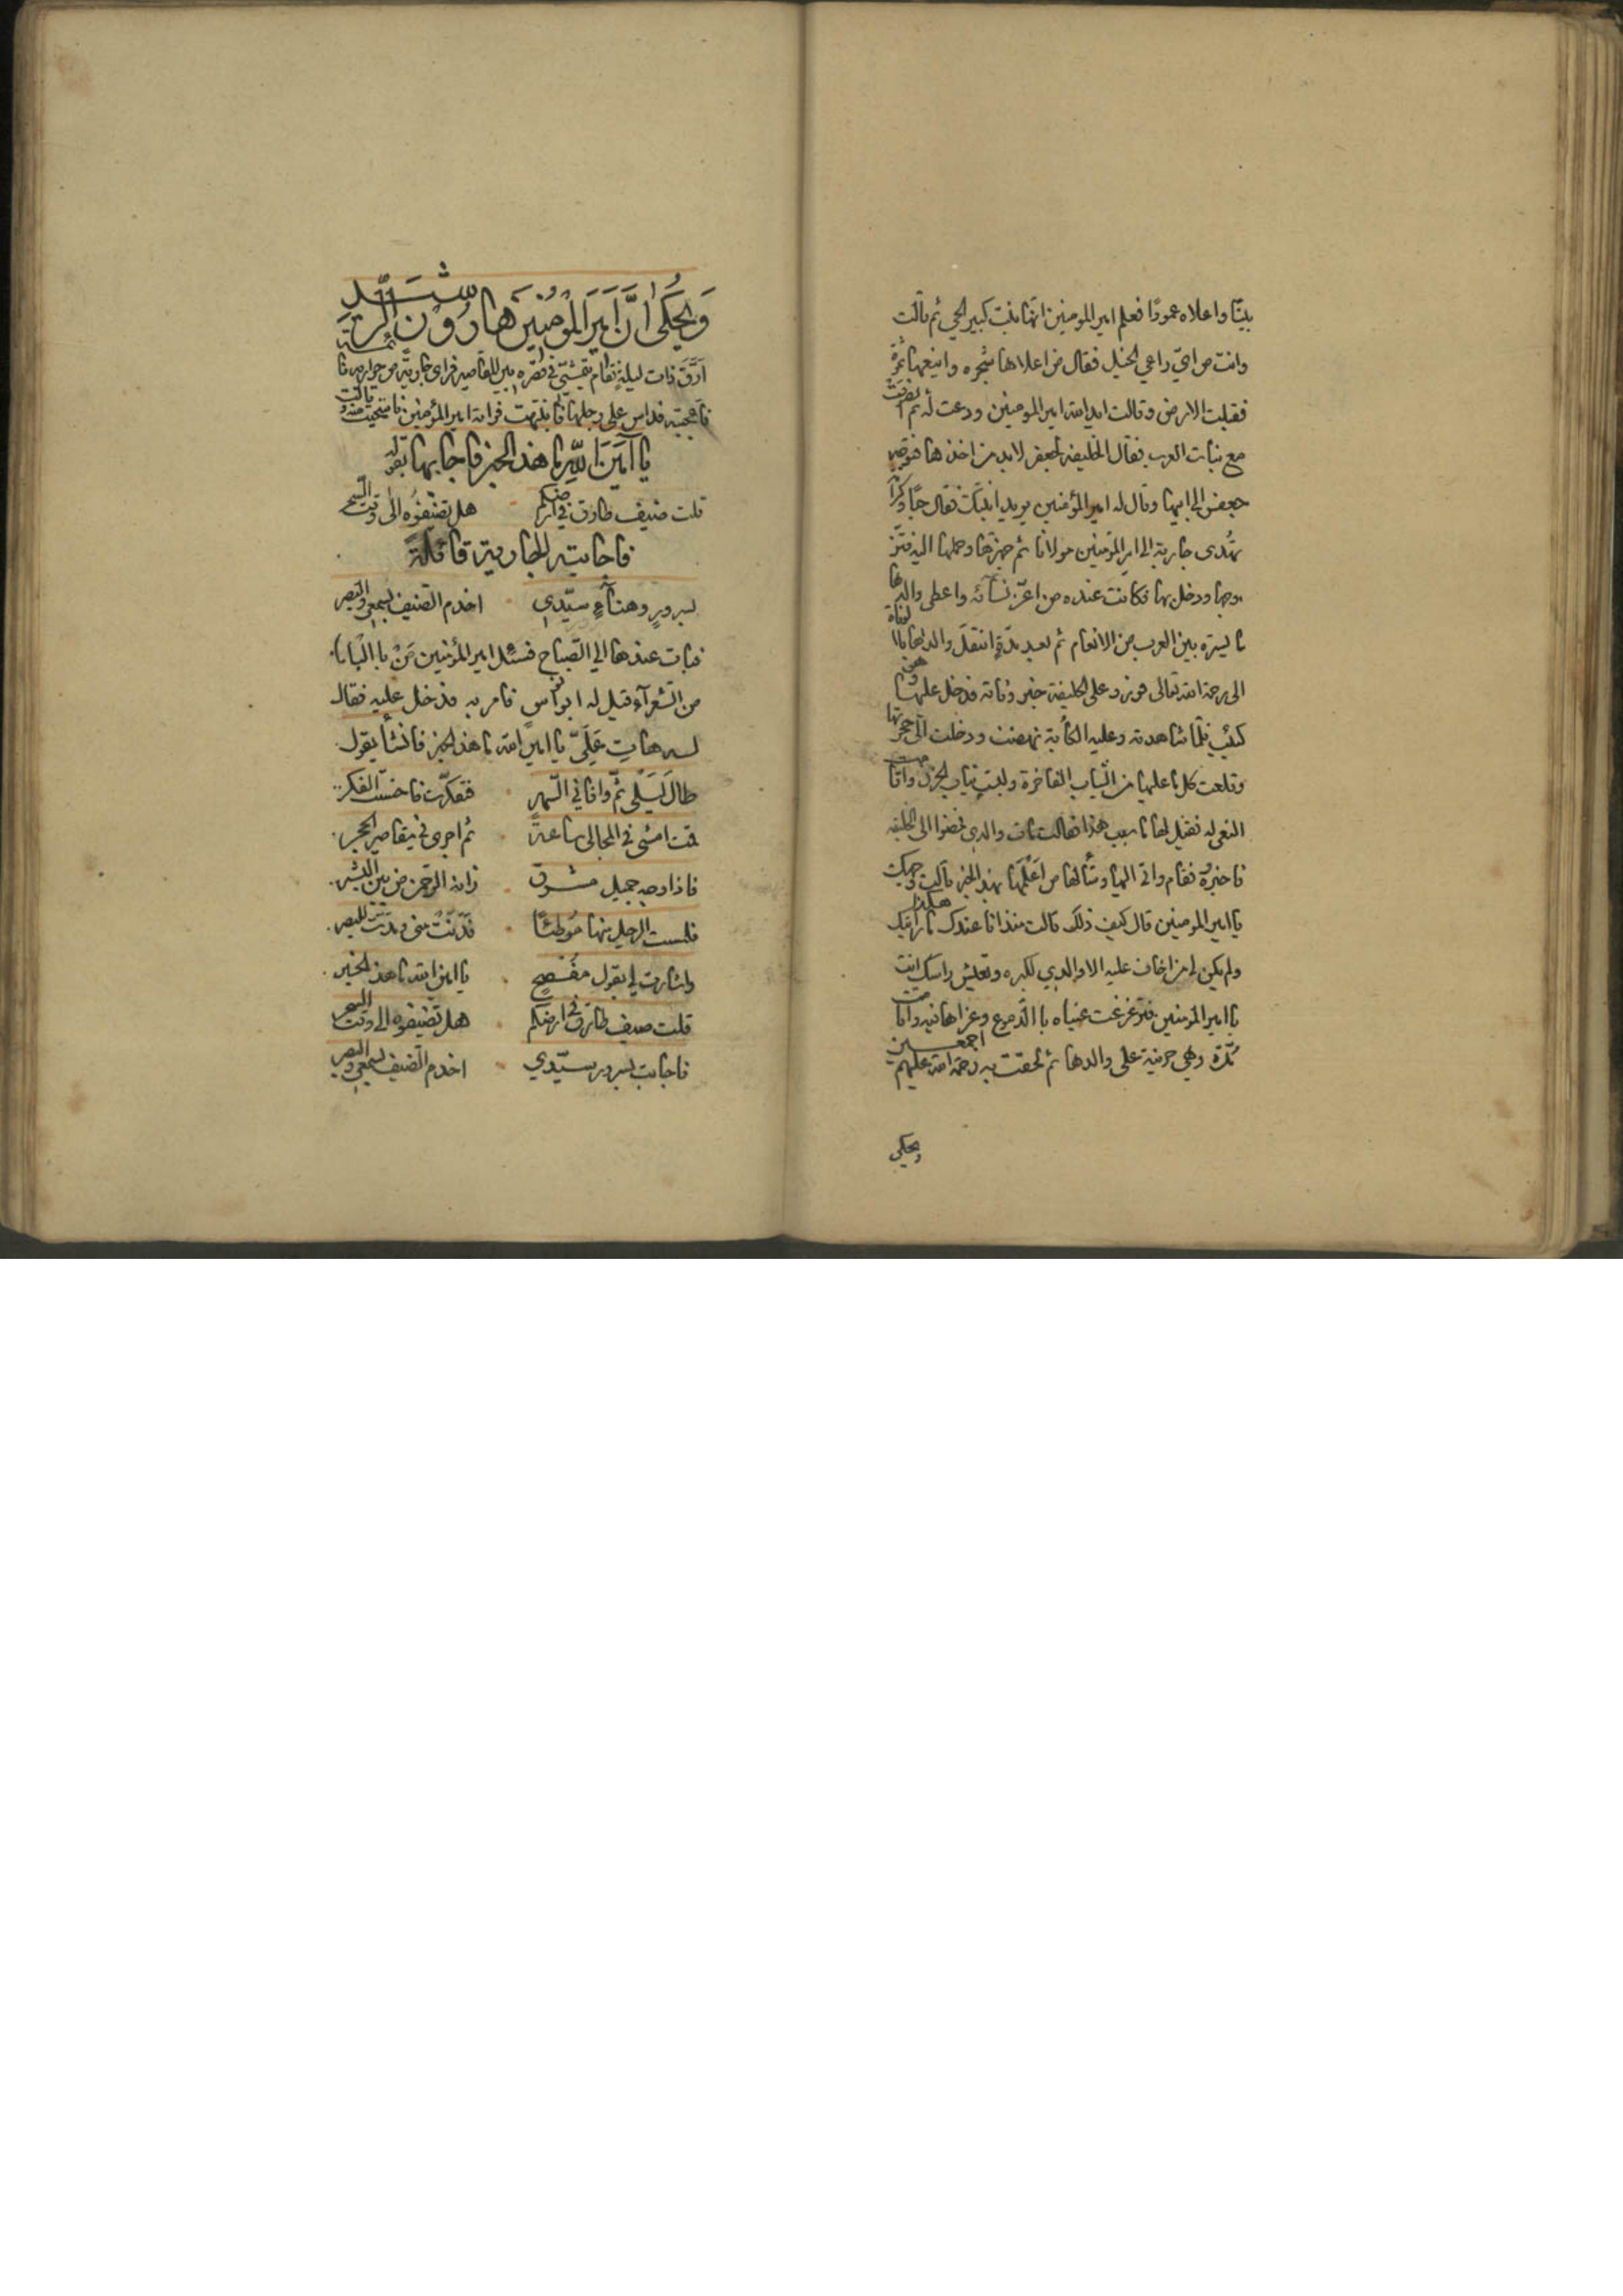 بيتا واعلاه عمودًا فعلم امير المومنين انها بنت كبير الحي ثم قالت
وانت من اي راعي الخيل فقال من اعلاها شجره وانيعها ثمرة
فقبلت الارض وقالت ايد الله امير المومنين ودعت له ثم انصرفت
مع بنات العرب فقال الخليفه لجعفر لابد من اخذها فتوجه
جعفر الى ابيها وقال له امير المؤمنين يريد ابنتك فقال حبًا وكرا
تهدى جارية الى امير المؤمنين مولانا ثم جهزها وحملها اليه فتز
وجها ودخل بها فكانت عنده من اعز نسائه واعطى والدها
ما يستره بين العرب من الانعام ثم بعد مدة انتقل والدها بالوفاة
الى رحمة الله تعالى فورد على الخليفة خبر وفاته فدخل عليها وهو
كئيب فلما شاهدته وعليه الكأبة نهضت ودخلت الى حجرتها
وقلعت كل ما عليها من الثياب الفاخرة ولبست ثياب الحزن واقامت
النعى له فقيل لها ما سبب هذا فقالت مات والدي فمضوا الى الخليفه
فاخبروه فقام واتى اليها وسألها من اعلمها بهذا الخبر قالت وجهك
يا امير المومنين قال كيف ذلك قالت منذ انا عندك ما رايتك هكذا
ولم يكن لي من اخاف عليه الا والدي لكبره وتعيش راسك انت
يا امير المؤمنين فتغرغرت عيناه با الدموع وعزاها فيه واقامت
مدة وهي حزينة على والدها ثم لحقت به رحمة الله عليهم اجمعين
ويحكى
وَيُحكَى انَّ اَمِيرَ المؤمِنِينَ هَارُوْنَ الرَّشِيد
اَرَّقَ ذات ليلةٍ فقام يتمشى في قصره بين المقاصير فراى جارية من جواره نائمة
فاعجبته فداس على رجلها فانتبهت فراته امير المؤمنين فاستحيت منه وقالت
يا اَمِيْنَ اللّهِ ما هذا الخبر فاجابها بقوله
قلت ضيف طارق في ارضكم هل تضيفوه الى وقت السحر
فاجابته الجارية قائلةً
بسرورٍ وهناءٍ سيّدي اخدم الضيف بسمعي والبصر
فبات عندها الى الصباح فسئل امير المؤمنين مَنْ با الباب
من الشعرآء قيل له ابو نواس فامر به فدخل عليه فقال
له هات عَلَيَّ يا امين الله ما هذا الخبر فانشأ يقول
طال لَيْلي ثمّ وافاني السّهر فتفكرت فاحسنت الفكر
قمت امشى في المجالى ساعةً ثم اجرى في مقاصير الحجر
فاذا وجه جميل مشرق زانه الرحمن من بين البشر
فلمست الرجل منها مُوطئًا فَدَنَتْ مني ومدت للبصر
واشارت لي بقول مفصحٍ يا امين الله ما هذا الخبر
قلت ضيف طارق في ارضكم هل تضيفوه الى وقت السحر
فاجابت بسرور سيّدي اخدم الضيف بسمعي والبصر